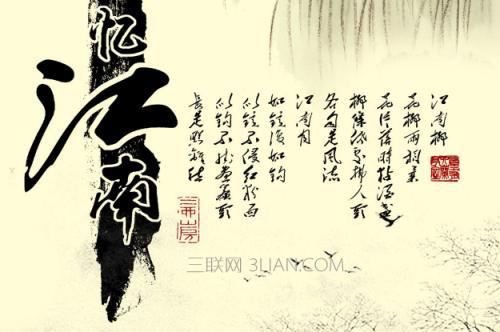 忆江南
江南柳
花柳两相柔
花片落时黏酒盏
柳条低处拂人头
各自是风流
江南月
如镜复如钩
似镜不侵红粉面
似钩不挂画帘头
长是照离愁
三联网 3LIAN.COM